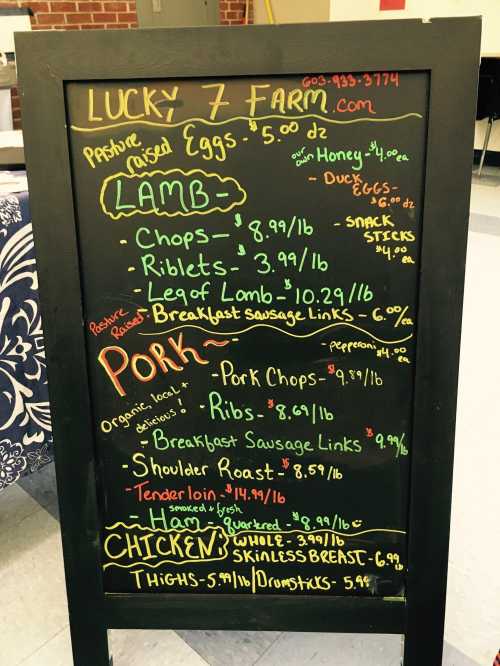 603-933-3774
LUCKY 7 FARM.com
Pasture raised Eggs - $5.00 dz
our own Honey - $4.00 ea
- DUCK EGGS - $6.00 dz
LAMB -
- SNACK STICKS $4.00 ea
- Chops - $8.99/lb
- Riblets - $3.99/lb
- Leg of Lamb - $10.29/lb
- Breakfast Sausage Links - 6.00/ea
Pasture Raised
PORK~
- Pepperoni $4.00 ea
- Pork Chops - $9.89/lb
Organic, local + delicious!
- Ribs - $8.69/lb
- Breakfast Sausage Links $9.99/lb
- Shoulder Roast - $8.59/lb
- Tenderloin - $14.99/lb
smoked + fresh
- Ham - quartred - $8.99/lb
CHICKEN: WHOLE - 3.99/lb
SKINLESS BREAST - 6.99 lb
THIGHS - 5.99/lb/DRUMSTICKS - 5.99